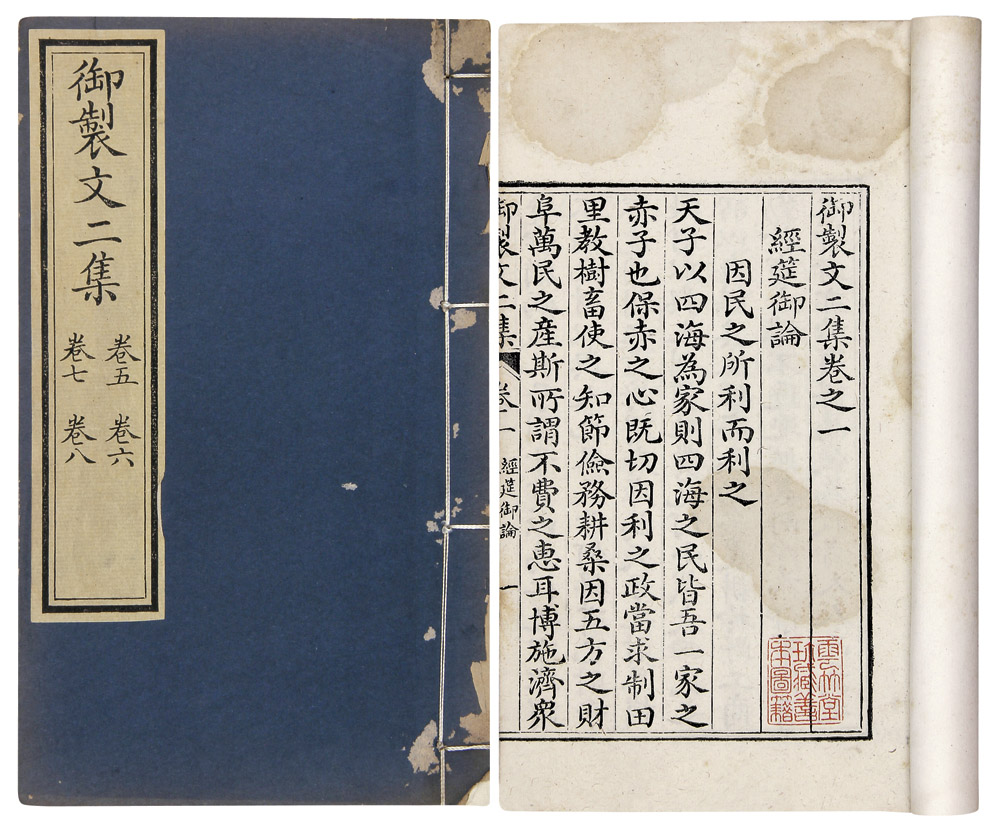 御製文二集
卷五 卷六
卷七 卷八
御製文二集卷之一
經筵御論
因民之所利而利之
天子以四海為家則四海之民皆吾一家之
赤子也保赤之心既切因利之政當求制田
里教樹畜使之知節儉務耕桑因五方之財
阜萬民之產斯所謂不費之惠耳博施濟衆
御製文二集 卷一 經筵御論 一
雲竹堂
珍藏善
本圖籍